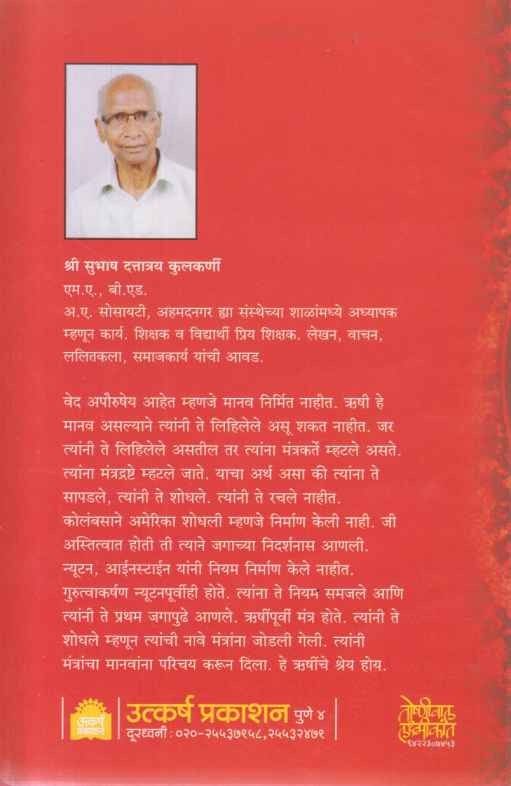 श्री सुभाष दत्तात्रय कुलकर्णी
एम.ए., बी.एड.
अ.ए. सोसायटी, अहमदनगर ह्या संस्थेच्या शाळांमध्ये अध्यापक
म्हणून कार्य. शिक्षक व विद्यार्थी प्रिय शिक्षक. लेखन, वाचन,
ललितकला, समाजकार्य यांची आवड.
वेद अपौरुषेय आहेत म्हणजे मानव निर्मित नाहीत. ऋषी हे
मानव असल्याने त्यांनी ते लिहिलेले असू शकत नाहीत. जर
त्यांनी ते लिहिलेले असतील तर त्यांना मंत्रकर्ते म्हटले असते.
त्यांना मंत्रद्रष्टे म्हटले जाते. याचा अर्थ असा की त्यांना ते
सापडले, त्यांनी ते शोधले. त्यांनी ते रचले नाहीत.
कोलंबसाने अमेरिका शोधली म्हणजे निर्माण केली नाही. जी
अस्तित्वात होती ती त्याने जगाच्या निदर्शनास आणली.
न्यूटन, आईनस्टाईन यांनी नियम निर्माण केले नाहीत.
गुरुत्वाकर्षण न्यूटनपूर्वीही होते. त्यांना ते नियम समजले आणि
त्यांनी ते प्रथम जगापुढे आणले. ऋषींपूर्वी मंत्र होते. त्यांनी ते
शोधले म्हणून त्यांची नावे मंत्रांना जोडली गेली. त्यांनी
मंत्रांचा मानवांना परिचय करून दिला. हे ऋषींचे श्रेय होय.
उत्कर्ष प्रकाशन
उत्कर्ष प्रकाशन पुणे ४
दूरध्वनी : ०२०-२५५३७९५८, २५५३२४७९